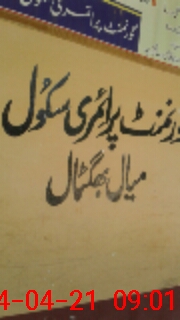 گورنمنٹ پرائمری سکول
ورنمنٹ پرائمری سکول
میال بھگٹال
4-04-21 09:01